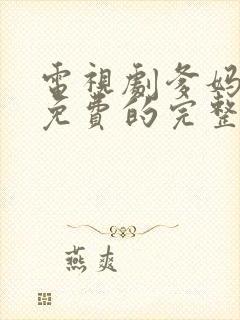 電視劇爹媽
免費的完整
燕爽